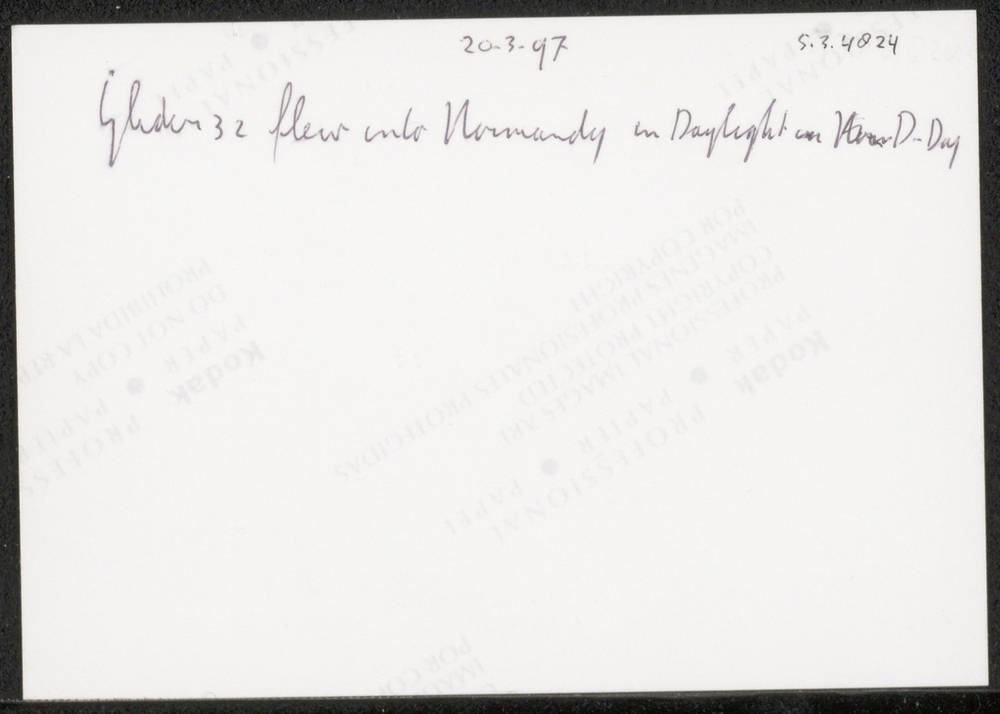 20-3-97 5.3.4824
Glider 32 flew into Normandy in Daylight on D-Day
PROFESSIONAL
PAPEL
PROHIBIDA LA REP
DO NOT COPY
PAPER
Kodak
PAPIER
PROFESS
POR COPYRIGHT
IMAGENES PROFESIONALES PROTEGIDAS
COPYRIGHT PROTECTED
PROFESSIONAL IMAGES ARE
PAPER
Kodak
PAPIER
PROFESSIONAL
PAPEL
POR CO
IMA